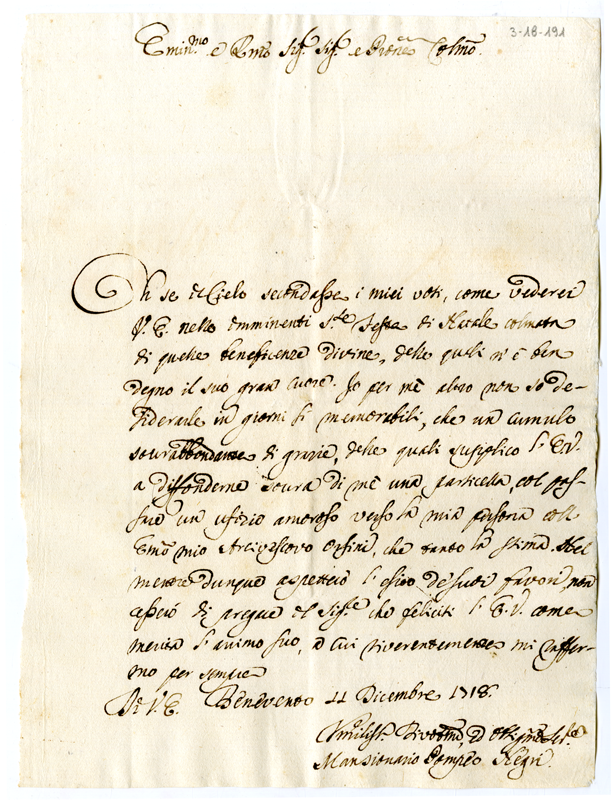 3-18-191
Emin.mo e Rmo Sig.r Sig.r e Prõne Colmo
Oh se il Cielo secondasse i miei voti, come vederei
V. E. nelle imminenti S.te Feste di Natale colmata
di quelle beneficenze divine, delle quali n'è ben
degno il suo gran cuore. Io per mè altro non sò de-
siderarle in giorni sì memorabili, che un cumulo
sourabbondante di grazie, delle quali supplico l'E.V.
a diffonderne soura di mè una particella, col pas-
sare un ufizio amoroso verso la mia persona coll
Emo mio Arcivescovo Orsini, che tanto la stima. Nel
mentre dunque aspetterò l'esito de suoi favori, non
lascio di pregare il Sig.re che feliciti l'E.V. come
merita l'animo suo, a cui riverentemente mi raffer-
mo per sempre
Di V.E. Benevento 11 Dicembre 1718.
Umiliss. Divotmo, ed Obligmo Ser.e
Mansionario Pompeo Negri.